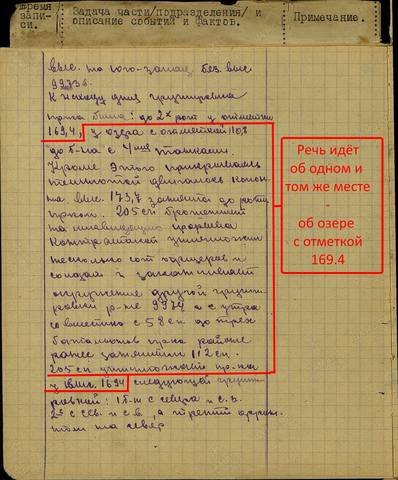 время
запи-
си.
Задача части/подразделения/ и
описание событий и фактов.
Примечание.
выс. на юго-запад. без. выс
99,73 в.
К исходу дня группировка
пр-ка была: до 2х рот у отметки
169,4, у озера с отметкой 10,8
до б-на с 4 танками.
Кроме этого прикрываясь
темнотой двигалось
на выс. 173,7 до роты
пр-ка. 205 сп
на
контратакой уничтожил
несколько сот офицеров и
солдат и заканчивает
окружение другой группи-
ровки р-не 9974 а с утра
совместно с 58 сп до трех
батальонов пр-ка районе
ранее занятым 112 сп.
205 сп
у выс. 169.4 следующей группи-
ровкой: 1 б-н с севера и с.в.
2й с сев. и с.в., а третий
на север
Речь идёт
об одном и
том же месте
-
об озере
с отметкой
169.4